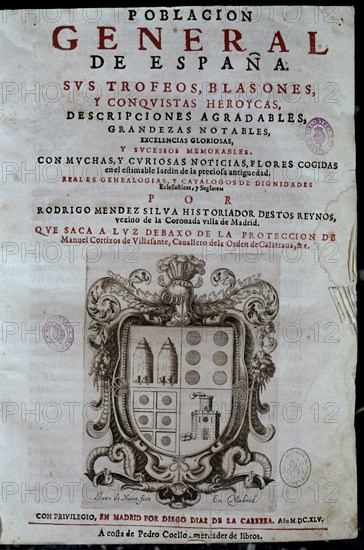 POBLACION
GENERAL
DE ESPAÑA.
SVS TROFEOS, BLASONES,
Y CONQVISTAS HEROYCAS,
DESCRIPCIONES AGRADABLES,
GRANDEZAS NOTABLES,
EXCELENCIAS GLORIOSAS,
Y SVCESSOS MEMORABLES.
CON MVCHAS, Y CVRIOSAS NOTICIAS, FLORES COGIDAS
en el estimable Iardin de la preciosa antiguedad.
REALES GENEALOGIAS, Y CATALOGOS DE DIGNIDADES
Eclesiasticas, y Seglares
POR
RODRIGO MENDEZ SILVA HISTORIADOR DESTOS REYNOS,
vezino de la Coronada villa de Madrid.
QVE SACA A LVZ DEBAXO DE LA PROTECCION DE
Manuel Cortizos de Villasante, Cauallero de la Orden de Calatraua, &c.
Juan de Noort fecit En Madrid
CON PRIVILEGIO, EN MADRID POR DIEGO DIAZ DE LA CARRERA. Año M.DC.XLV.
A costa de Pedro Coello, mercader de libros.